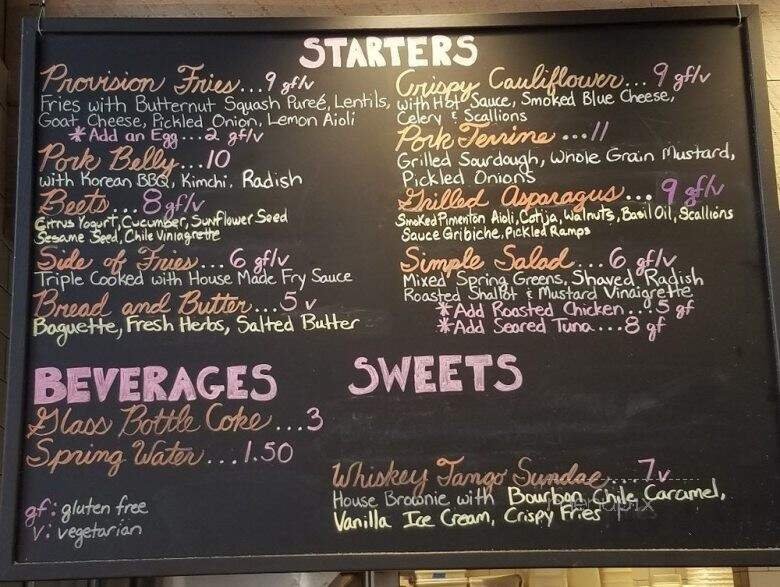 STARTERS
Provision Fries...9 gf/v
Fries with Butternut Squash Pureé, Lentils,
Goat Cheese, Pickled Onion, Lemon Aioli
*Add an Egg...2 gf/v
Pork Belly...10
with Korean BBQ, Kimchi, Radish
Beets...8 gf/v
Citrus Yogurt, Cucumber, Sunflower Seed
Sesame Seed, Chile Viniagrette
Side of Fries...6 gf/v
Triple Cooked with House Made Fry Sauce
Bread and Butter...5 v
Baguette, Fresh Herbs, Salted Butter
Crispy Cauliflower...9 gf/v
with Hot Sauce, Smoked Blue Cheese,
Celery & Scallions
Pork Terrine...11
Grilled Sourdough, Whole Grain Mustard,
Pickled Onions
Grilled Asparagus...9 gf/v
Smoked Pimenton Aioli, Cotija, Walnuts, Basil Oil, Scallions
Sauce Gribiche, Pickled Ramps
Simple Salad...6 gf/v
Mixed Spring Greens, Shaved Radish
Roasted Shallot & Mustard Vinaigrette
*Add Roasted Chicken...5 gf
*Add Seared Tuna...8 gf
BEVERAGES
Glass Bottle Coke...3
Spring Water...1.50
gf: gluten free
v: vegetarian
SWEETS
Whiskey Tango Sundae...7 v
House Brownie with Bourbon Chile Caramel,
Vanilla Ice Cream, Crispy Fries